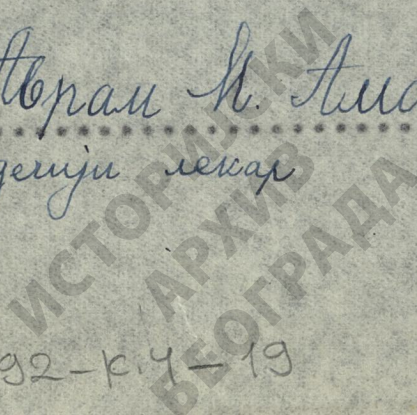 Аврам М. Ама
дечији лекар
ИСТОРИЈСКИ
АРХИВ
БЕОГРАДА
92-к.4-19